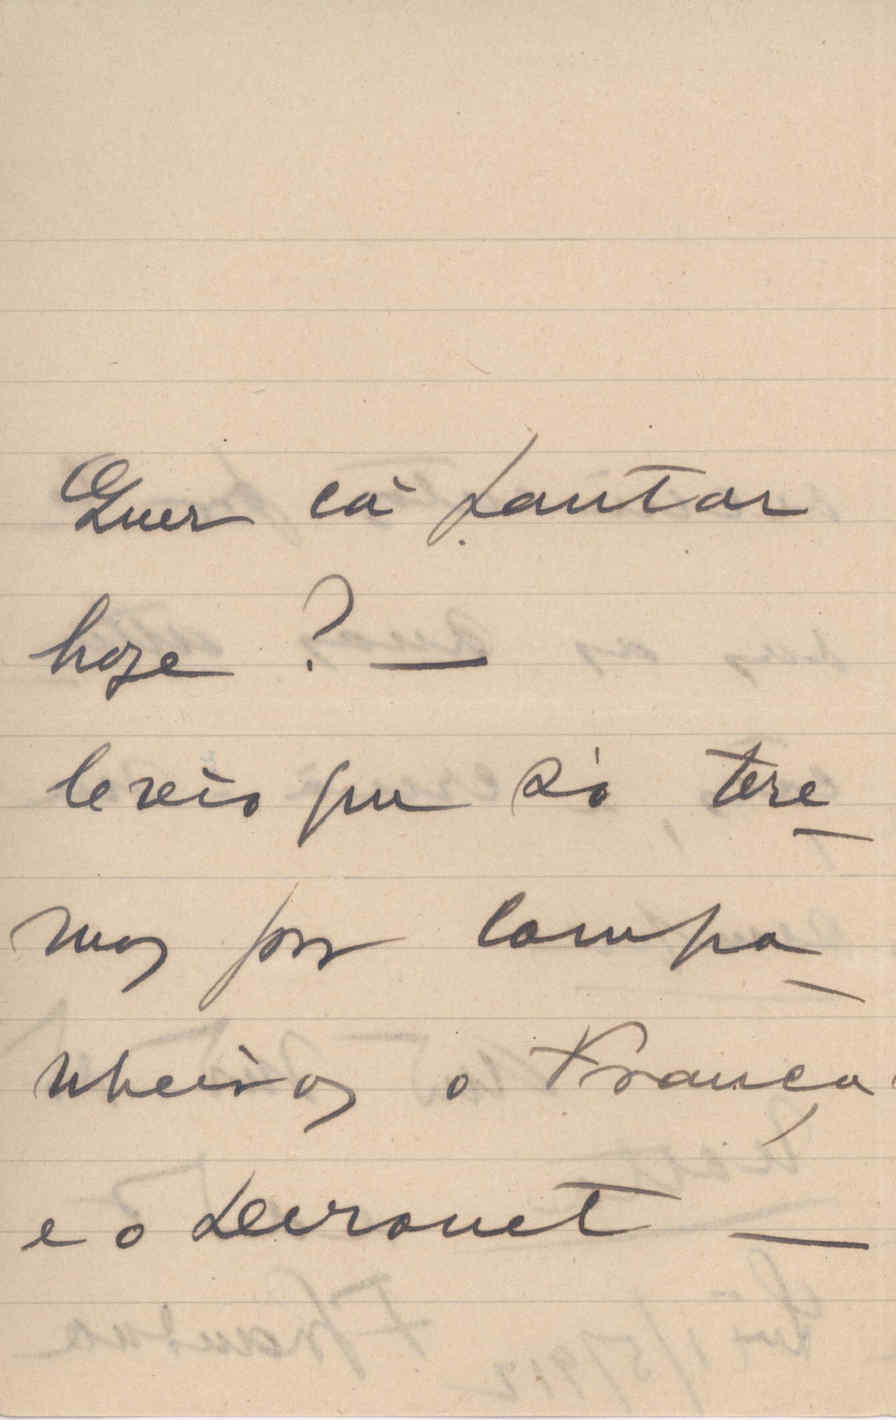 Quer cá jantar
hoje ? —
Creio que só tere
mos por compa
nheiros o França
e o Derouet —